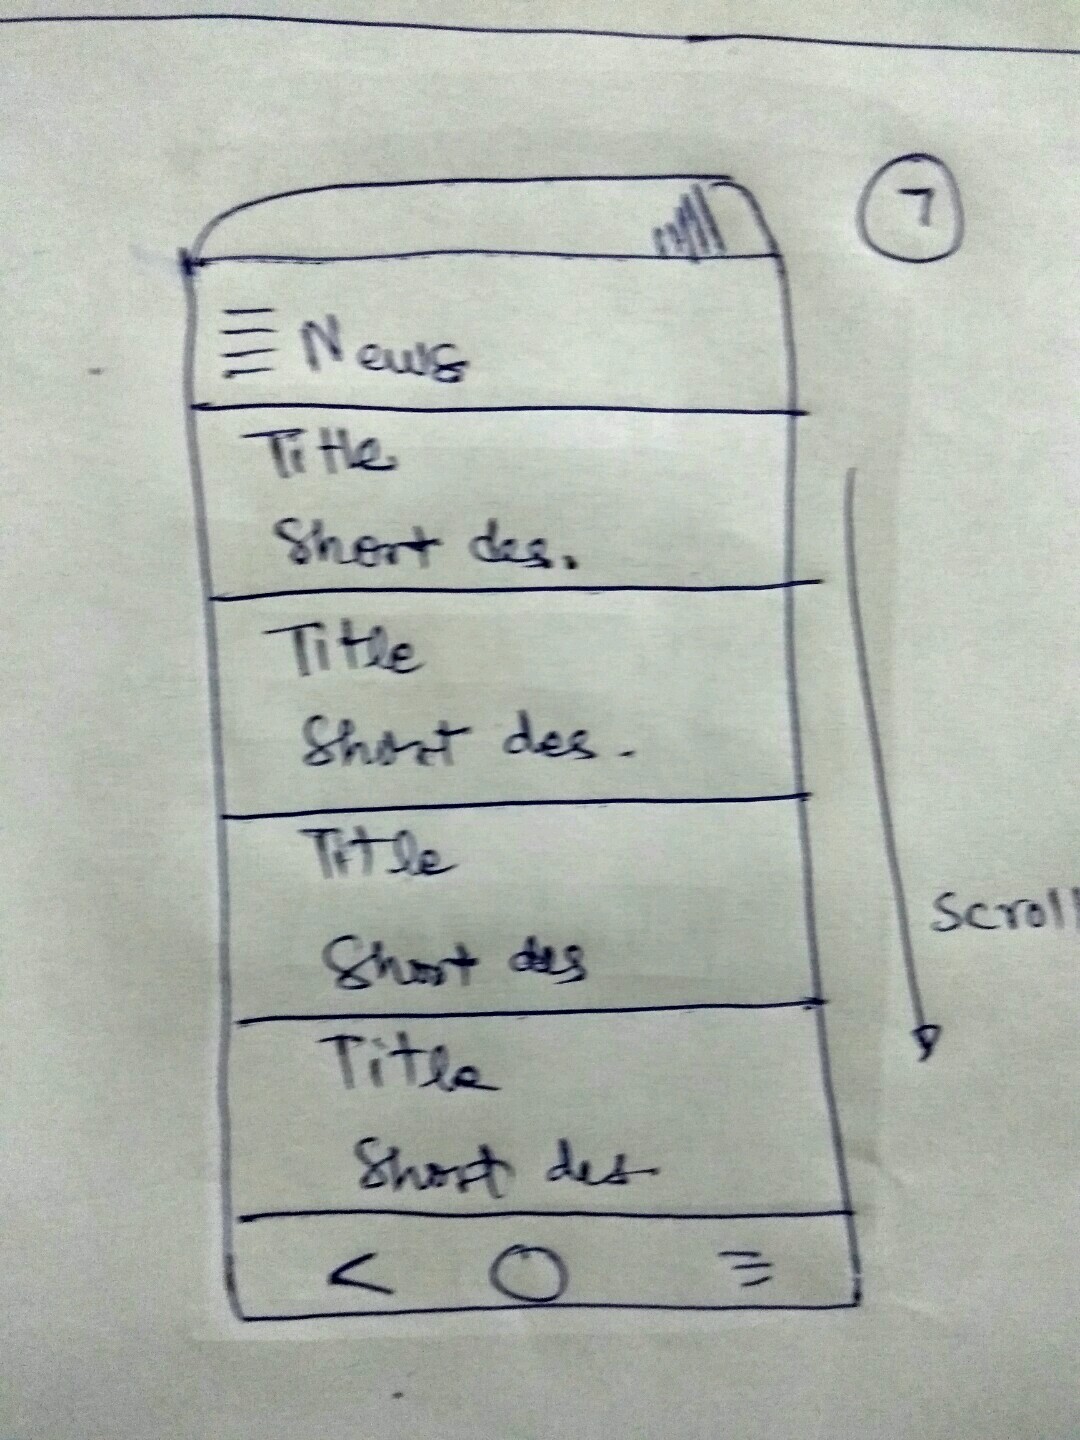 7
News
Title
Short des.
Title
Short des.
Title
Short des
Title
Short des
Scroll